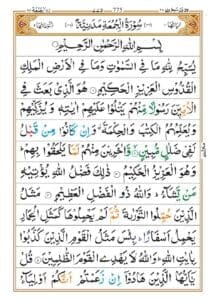 سُوْرَةُ الْجُمُعَةِ مَدَنِيَّةٌ
بِسْمِ اللهِ الرَّحْمٰنِ الرَّحِيْمِ
يُسَبِّحُ لِلّٰهِ مَا فِي السَّمٰوٰتِ وَمَا فِي الْاَرْضِ الْمَلِكِ
الْقُدُّوْسِ الْعَزِيْزِ الْحَكِيْمِ هُوَ الَّذِيْ بَعَثَ فِي
الْاُمِّيّٖنَ رَسُوْلًا مِّنْهُمْ يَتْلُوْا عَلَيْهِمْ اٰيٰتِهٖ وَيُزَكِّيْهِمْ
وَيُعَلِّمُهُمُ الْكِتٰبَ وَالْحِكْمَةَ وَاِنْ كَانُوْا مِنْ قَبْلُ
لَفِيْ ضَلٰلٍ مُّبِيْنٍ وَّاٰخَرِيْنَ مِنْهُمْ لَمَّا يَلْحَقُوْا بِهِمْ
وَهُوَ الْعَزِيْزُ الْحَكِيْمُ ذٰلِكَ فَضْلُ اللهِ يُؤْتِيْهِ
مَنْ يَّشَآءُ وَاللهُ ذُو الْفَضْلِ الْعَظِيْمِ مَثَلُ الَّذِيْنَ
حُمِّلُوا التَّوْرٰىةَ ثُمَّ لَمْ يَحْمِلُوْهَا كَمَثَلِ الْحِمَارِ
يَحْمِلُ اَسْفَارًا بِئْسَ مَثَلُ الْقَوْمِ الَّذِيْنَ كَذَّبُوْا
بِاٰيٰتِ اللهِ وَاللهُ لَا يَهْدِي الْقَوْمَ الظّٰلِمِيْنَ قُلْ
يٰٓاَيُّهَا الَّذِيْنَ هَادُوْٓا اِنْ زَعَمْتُمْ اَنَّكُمْ اَوْلِيَآءُ